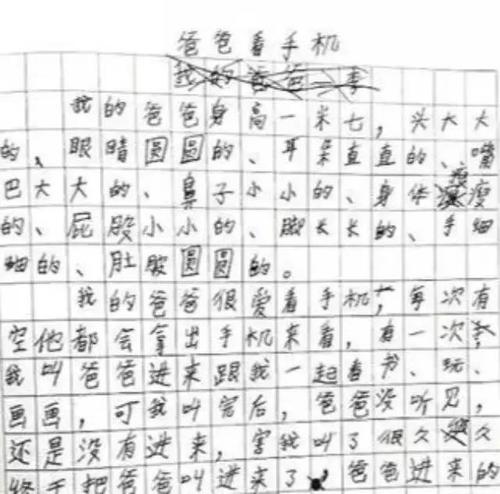 爸爸看手机
我的爸爸
我的爸爸身高一米七，头大大
的、眼睛圆圆的、耳朵直直的、嘴
巴大大的、鼻子小小的、身体瘦瘦
的、屁股小小的、脚长长的、手细
细的、肚脐圆圆的。
我的爸爸很爱看手机，每次有
空他都会拿出手机来看，有一次，
我叫爸爸进来跟我一起看书、玩、
画画，可我叫完后，爸爸没听见，
还是没有进来，害我叫了很久久
终于把爸爸叫进来了，爸爸进来的